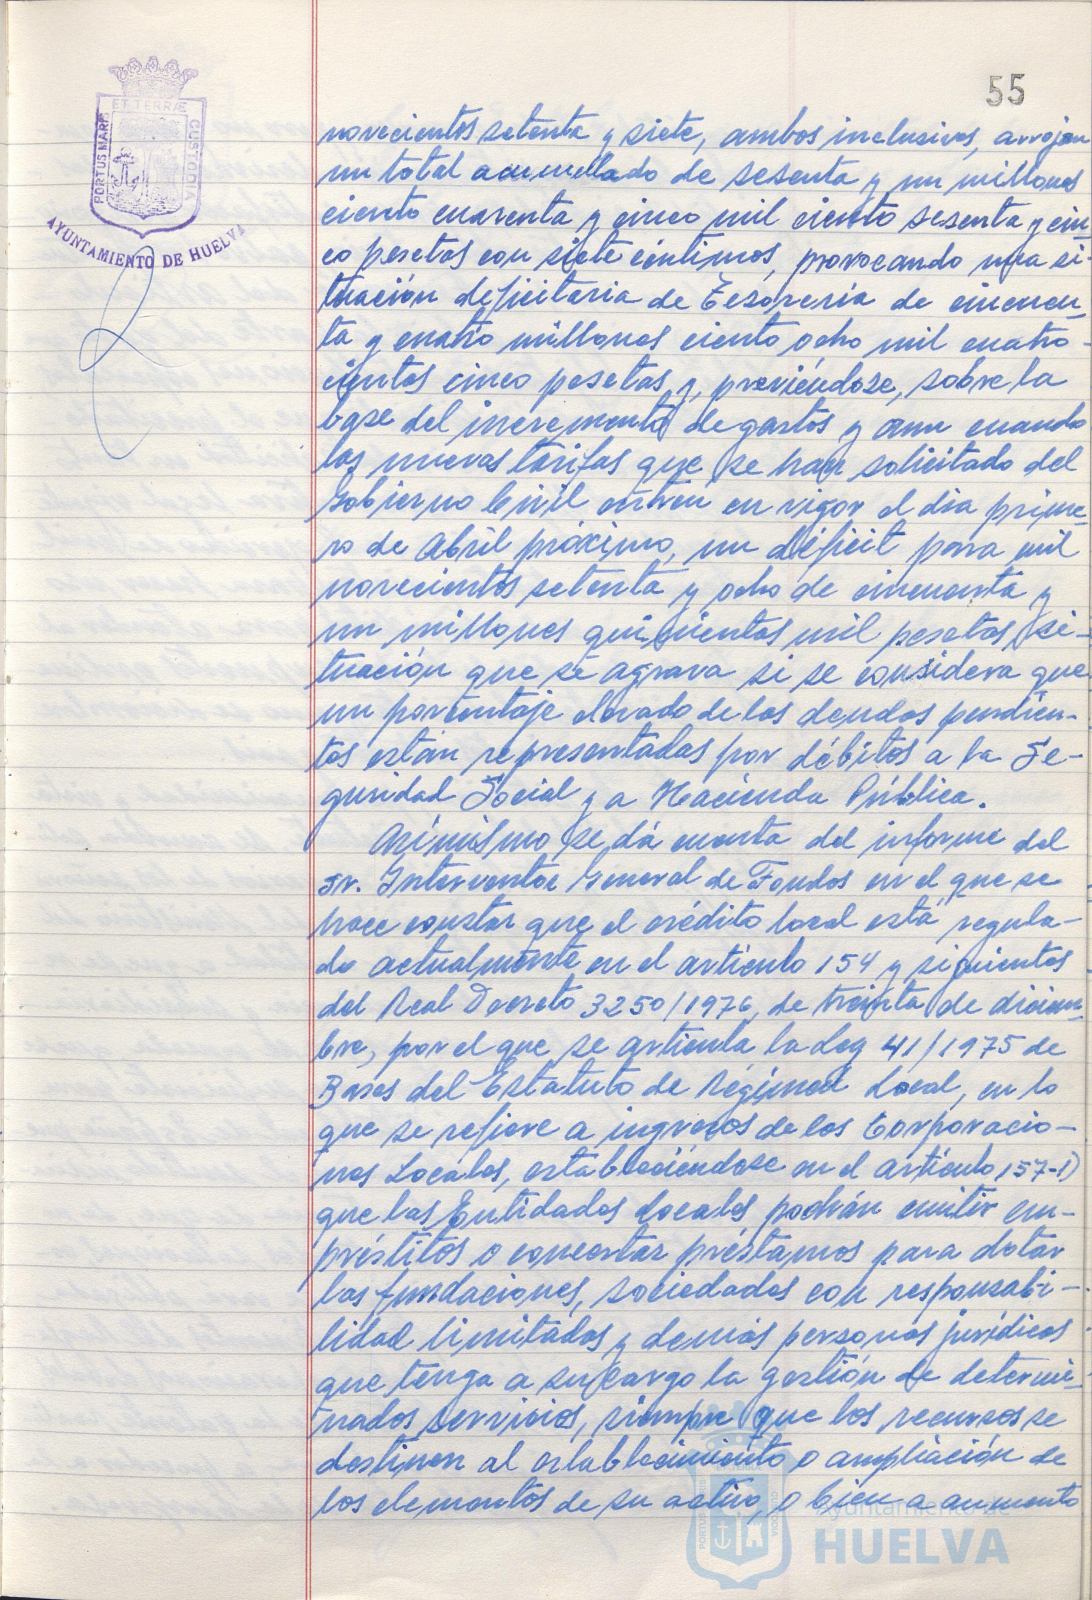 55
ET TERRÆ
PORTUS MARIS
CUSTODIA
AYUNTAMIENTO DE HUELVA
novecientos setenta y siete, ambos inclusives, arrojan
un total acumulado de sesenta y un millones
ciento cuarenta y cinco mil ciento sesenta y cin-
co pesetas con siete céntimos, provocando una si-
tuación deficitaria de Tesorería de cincuen-
ta y cuatro millones ciento ocho mil cuatro-
cientas cinco pesetas y, previéndose, sobre la
base del incremento de gastos y aun cuando
las nuevas tarifas que se han solicitado del
Gobierno Civil entren en vigor el día prime-
ro de Abril próximo, un déficit para mil
novecientos setenta y ocho de cincuenta y
un millones quinientas mil pesetas, si-
tuación que se agrava si se considera que
un porcentaje elevado de las deudas pendien-
tes están representadas por débitos a la Se-
guridad Social y a Hacienda Pública.
Asimismo se dá cuenta del informe del
Sr. Interventor General de Fondos en el que se
hace constar que el crédito local está regula-
do actualmente en el artículo 154 y siguientes
del Real Decreto 3250/1976, de treinta de diciem-
bre, por el que se articula la Ley 41/1975 de
Bases del Estatuto de Régimen Local, en lo
que se refiere a ingresos de las Corporacio-
nes Locales, estableciéndose en el artículo 157-1)
que las Entidades Locales podrán emitir em-
préstitos o concertar préstamos para dotar
las fundaciones, sociedades con responsabi-
lidad limitadas y demás personas jurídicas
que tenga a su cargo la gestión de determi-
nados servicios, siempre que los recursos se
destinen al establecimiento o ampliación de
los elementos de su activo, o bien a aumento
Ayuntamiento de
HUELVA